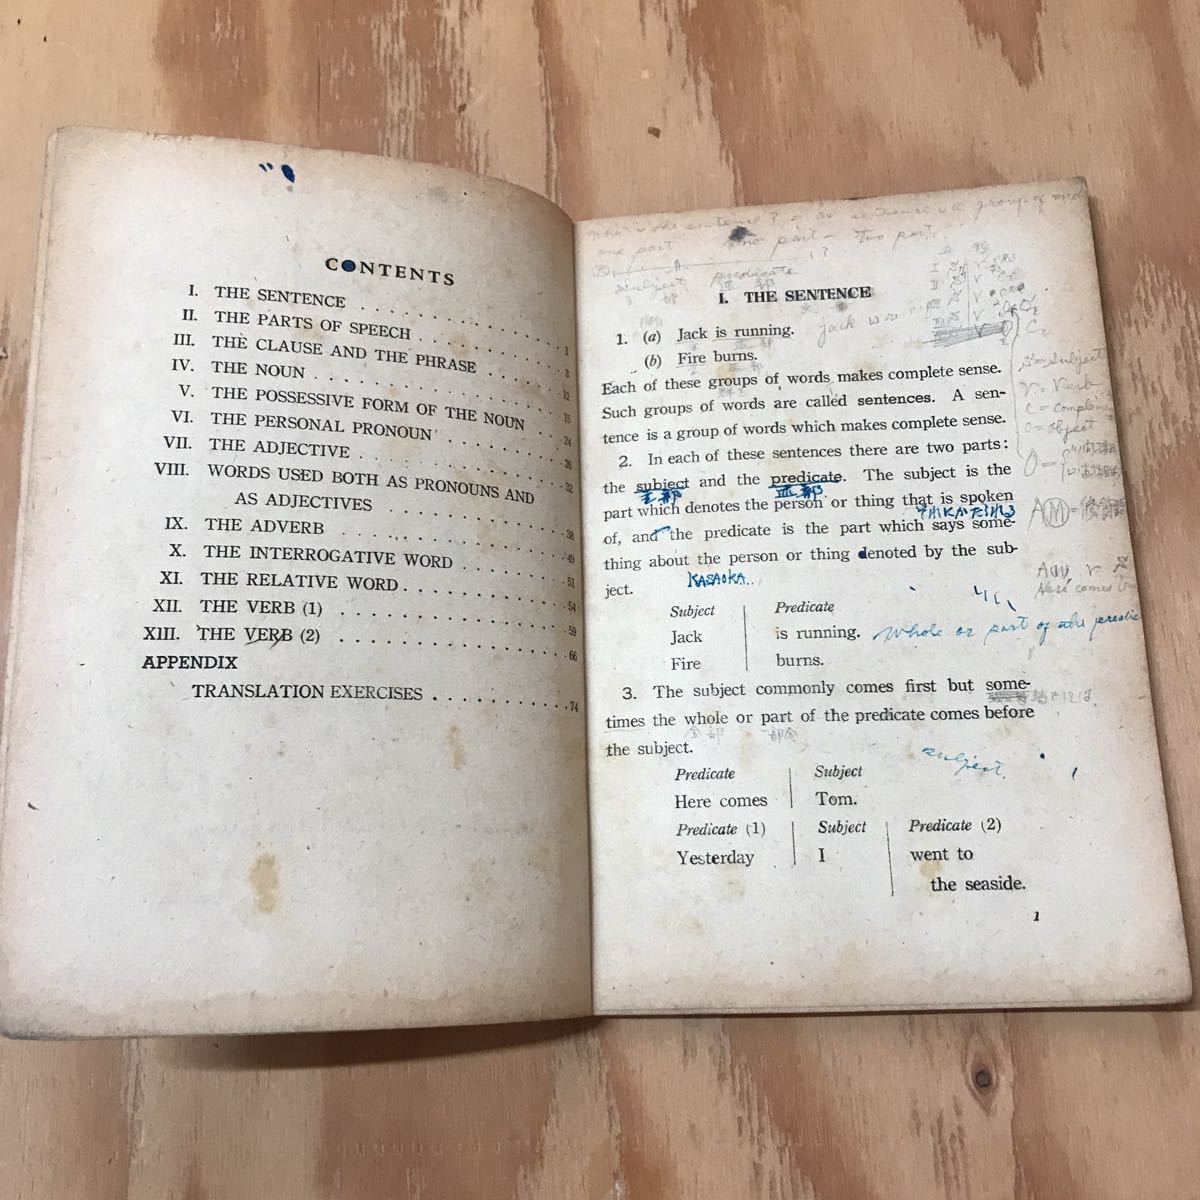 CONTENTS
I. THE SENTENCE . . . . . . . . . . . 1
II. THE PARTS OF SPEECH . . . . . . . . 3
III. THE CLAUSE AND THE PHRASE . . . . . 12
IV. THE NOUN . . . . . . . . . . . . . 15
V. THE POSSESSIVE FORM OF THE NOUN . . 24
VI. THE PERSONAL PRONOUN . . . . . . . 26
VII. THE ADJECTIVE . . . . . . . . . . . 32
VIII. WORDS USED BOTH AS PRONOUNS AND
AS ADJECTIVES . . . . . . . . . . . 38
IX. THE ADVERB . . . . . . . . . . . . 49
X. THE INTERROGATIVE WORD . . . . . . 51
XI. THE RELATIVE WORD . . . . . . . . . 54
XII. THE VERB (1) . . . . . . . . . . . 59
XIII. THE VERB (2) . . . . . . . . . . . 66
APPENDIX
TRANSLATION EXERCISES . . . . . . . . . 74
one part two part
subject predicate
主部
I. THE SENTENCE
1. (a) Jack is running.
(b) Fire burns.
Each of these groups of words makes complete sense.
Such groups of words are called sentences. A sen-
tence is a group of words which makes complete sense.
S = Subject
V = Verb
C = complement
O = object
2. In each of these sentences there are two parts:
the subject and the predicate. The subject is the
主部
part which denotes the person or thing that is spoken
of, and the predicate is the part which says some-
thing about the person or thing denoted by the sub-
ject.
KASAOKA
Here comes
Subject Predicate
Jack is running.
whole or part of the
Fire burns.
3. The subject commonly comes first but some-
times the whole or part of the predicate comes before
全部 部分
the subject.
subject.
Predicate Subject
Here comes Tom.
Predicate (1) Subject Predicate (2)
Yesterday I went to
the seaside.
1